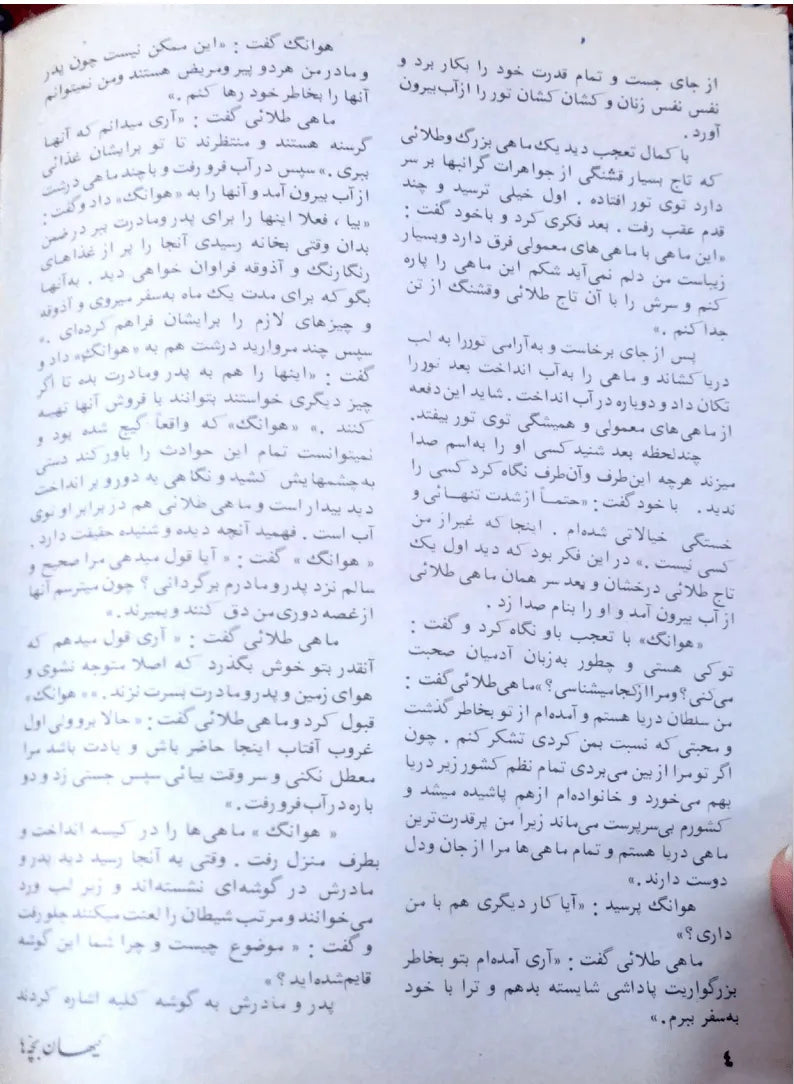 از جای جست و تمام قدرت خود را بکار برد و
نفس نفس زنان و کشان کشان تور را از آب بیرون
آورد.
با کمال تعجب دید یک ماهی بزرگ و طلائی
که تاج بسیار قشنگی از جواهرات گرانبها بر سر
دارد توی تور افتاده. اول خیلی ترسید و چند
قدم عقب رفت. بعد فکری کرد و با خود گفت:
«این ماهی با ماهی های معمولی فرق دارد و بسیار
زیباست من دلم نمی‌آید شکم این ماهی را پاره
کنم و سرش را با آن تاج طلائی و قشنگ از تن
جدا کنم.»
پس از جای برخاست و به‌آرامی تور را به لب
دریا کشاند و ماهی را به‌آب انداخت بعد تور را
تکان داد و دوباره در آب انداخت. شاید این دفعه
از ماهی های معمولی و همیشگی توی تور بیفتد.
چند لحظه بعد شنید کسی او را به‌اسم صدا
میزند هرچه این‌طرف و آن‌طرف نگاه کرد کسی را
ندید. با خود گفت: «حتماً از شدت تنهائی و
خستگی خیالاتی شده‌ام. اینجا که غیر از من
کسی نیست.» در این فکر بود که دید اول یک
تاج طلائی درخشان و بعد سر همان ماهی طلائی
از آب بیرون آمد و او را بنام صدا زد.
«هوانگ» با تعجب باو نگاه کرد و گفت:
تو کی هستی و چطور به‌زبان آدمیان صحبت
می‌کنی؟ و مرا از کجا میشناسی؟» ماهی طلائی گفت:
من سلطان دریا هستم و آمده‌ام از تو بخاطر گذشت
و محبتی که نسبت بمن کردی تشکر کنم. چون
اگر تو مرا از بین می‌بردی تمام نظم کشور زیر دریا
بهم می‌خورد و خانواده‌ام ازهم پاشیده میشد و
کشورم بی‌سرپرست می‌ماند زیرا من پرقدرت ترین
ماهی دریا هستم و تمام ماهی‌ها مرا از جان ودل
دوست دارند.»
هوانگ پرسید: «آیا کار دیگری هم با من
داری؟»
ماهی طلائی گفت: «آری آمده‌ام بتو بخاطر
بزرگواریت پاداشی شایسته بدهم و ترا با خود
به‌سفر ببرم.»
هوانگ گفت: «این ممکن نیست چون پدر
و مادر من هر دو پیر و مریض هستند و من نمیتوانم
آنها را بخاطر خود رها کنم.»
ماهی طلائی گفت: «آری میدانم که آنها
گرسنه هستند و منتظرند تا تو برایشان غذائی
ببری.» سپس در آب فرو رفت و با چند ماهی درشت
از آب بیرون آمد و آنها را به «هوانگ» داد و گفت:
«بیا، فعلا اینها را برای پدر ومادرت ببر در ضمن
بدان وقتی بخانه رسیدی آنجا را پر از غذاهای
رنگارنگ و آذوقه فراوان خواهی دید. به‌آنها
بگو که برای مدت یک ماه به‌سفر میروی و آذوقه
و چیزهای لازم را برایشان فراهم کرده‌ای.»
سپس چند مروارید درشت هم به «هوانگ» داد و
گفت: «اینها را هم به پدر ومادرت بده تا اگر
چیز دیگری خواستند بتوانند با فروش آنها تهیه
کنند.» «هوانگ» که واقعاً گیج شده بود و
نمیتوانست تمام این حوادث را باور کند دستی
به‌چشمهایش کشید و نگاهی به دور و بر انداخت
دید بیدار است و ماهی طلائی هم در برابر او توی
آب است. فهمید آنچه دیده و شنیده حقیقت دارد.
«هوانگ» گفت: «آیا قول میدهی مرا صحیح و
سالم نزد پدر و مادرم برگردانی؟ چون میترسم آنها
از غصه دوری من دق کنند و بمیرند.»
ماهی طلائی گفت: «آری قول میدهم که
آنقدر بتو خوش بگذرد که اصلا متوجه نشوی و
هوای زمین و پدر و مادرت بسرت نزند.» «هوانگ»
قبول کرد و ماهی طلائی گفت: «حالا برو ولی اول
غروب آفتاب اینجا حاضر باش و یادت باشد مرا
معطل نکنی و سر وقت بیائی سپس جستی زد و دو
باره در آب فرو رفت.»
«هوانگ» ماهی‌ها را در کیسه انداخت و
بطرف منزل رفت. وقتی به آنجا رسید دید پدر و
مادرش در گوشه‌ای نشسته‌اند و زیر لب ورد
می‌خوانند و مرتب شیطان را لعنت میکنند جلو رفت
و گفت: «موضوع چیست و چرا شما این گوشه
قایم شده‌اید؟»
پدر و مادرش به گوشه کلبه اشاره کردند
۴
کیهان بچه‌ها